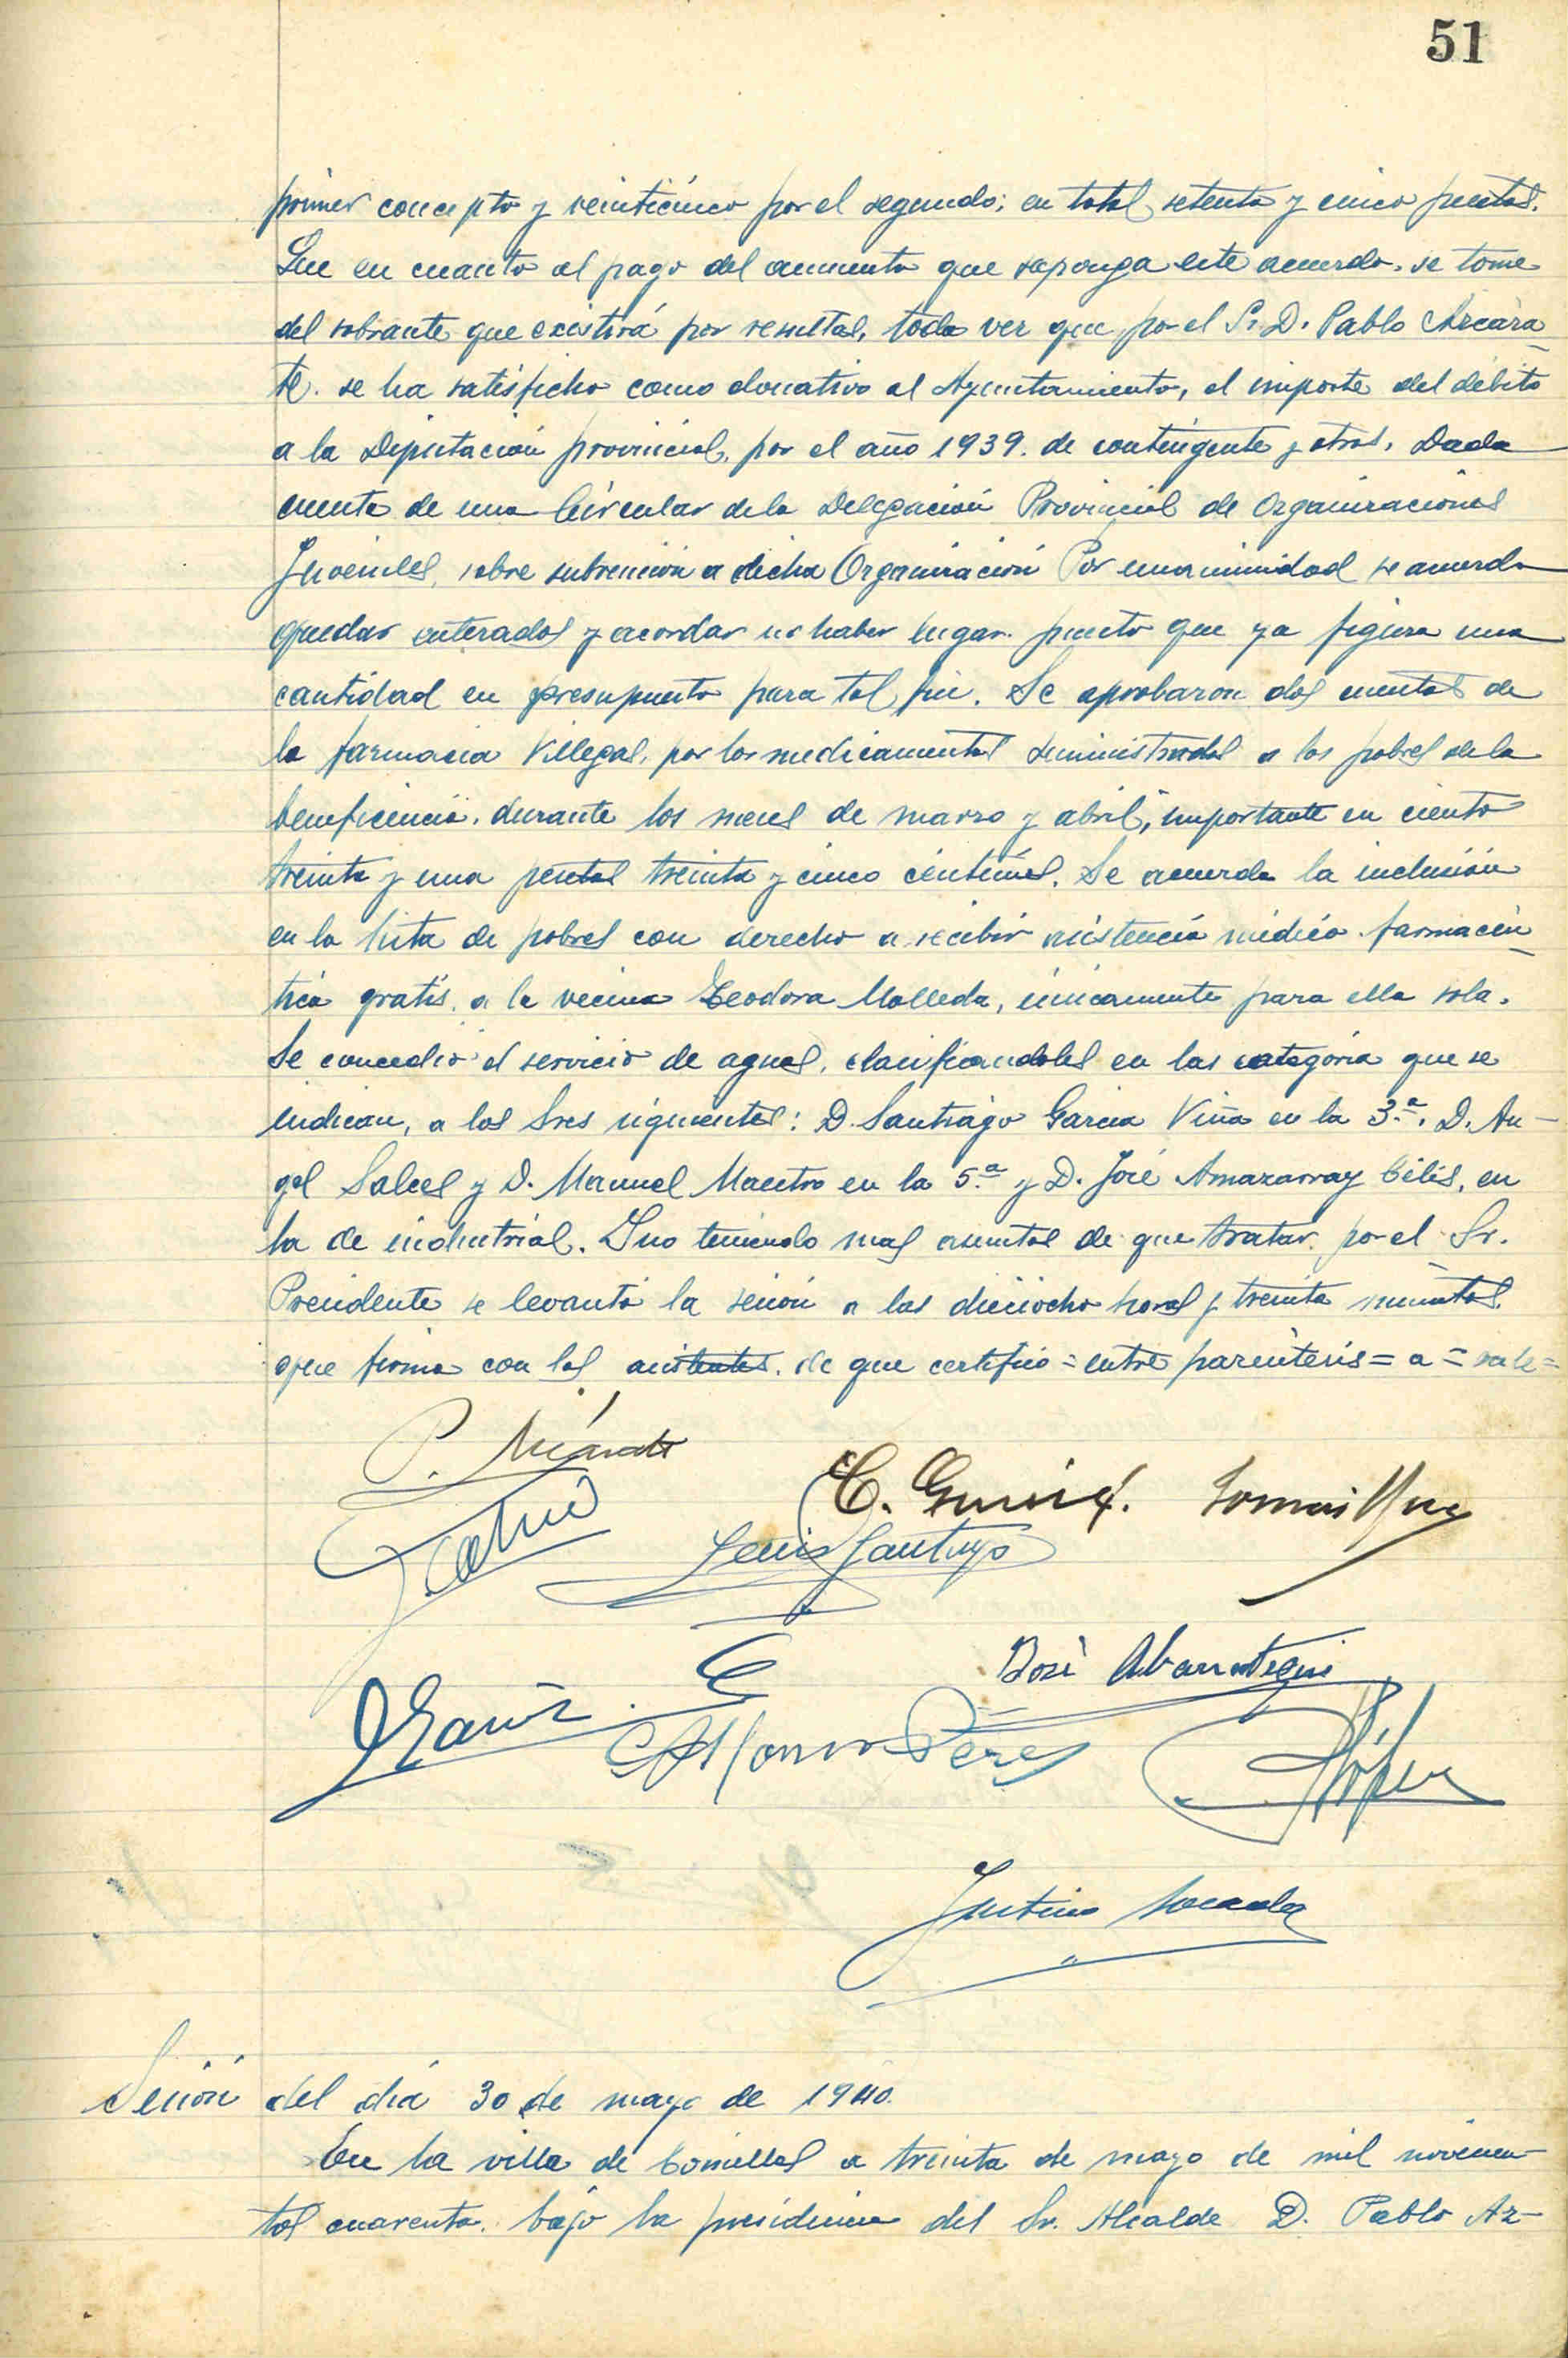 51
primer concepto y veinticinco por el segundo; en total setenta y cinco pesetas.
Que en cuanto al pago del aumento que suponga este acuerdo, se tome
del sobrante que existirá por resultas, toda vez que por el Sr. D. Pablo Azcára-
te. se ha satisfecho como donativo al Ayuntamiento, el importe del débito
a la Diputación provincial, por el año 1939. de contingente y otros. Dada
cuenta de una Circular de la Delegación Provincial de Organizaciones
Juveniles, sobre subvención a dicha Organización Por unanimidad se acuerda
quedar enterados y acordar no haber lugar. puesto que ya figura una
cantidad en presupuesto para tal fin. Se aprobaron dos cuentas de
la farmacia Villegas, por los medicamentos suministrados a los pobres de la
beneficencia, durante los meses de marzo y abril, importante en ciento
treinta y una pesetas treinta y cinco céntimos. Se acuerda la inclusión
en la lista de pobres con derecho a recibir asistencia médico-farmacéu-
tica gratis, a la vecina Teodora Molleda, únicamente para ella sola.
Se concedió el servicio de aguas, clasificandoles en las categoria que se
indican, a los Sres siguientes: D. Santiago Garcia Viña en la 3.ª, D. An-
gel Salces y D. Manuel Maestro en la 5.ª y D. José Amazarray Célis, en
la de industrial. Y no teniendo mas asuntos de que tratar, por el Sr.
Presidente se levantó la sesión a las dieciocho horas y treinta minutos,
que firma con los asistentes, de que certifico = entre paréntesis = a = vale =
P. Azcárate
Luis Santiago
José Abarrategui
Sanz
Alfonso Pérez
López
Justino
Sesión del dia 30 de mayo de 1940.
En la villa de Comillas a treinta de mayo de mil novecien-
tos cuarenta, bajo la presidencia del Sr. Alcalde D. Pablo Az-